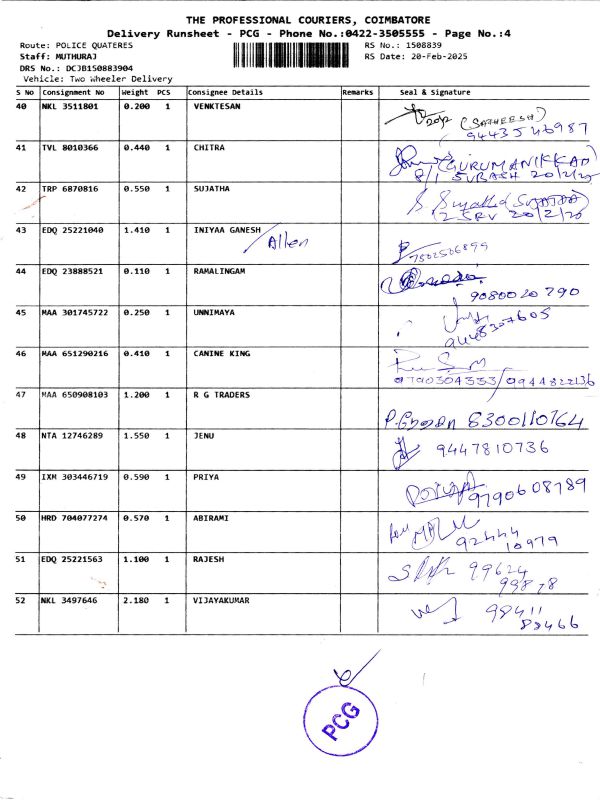 THE PROFESSIONAL COURIERS, COIMBATORE
Delivery Runsheet - PCG - Phone No.:0422-3505555 - Page No.:4
Route: POLICE QUATERES RS No.: 1508839
Staff: MUTHURAJ RS Date: 20-Feb-2025
DRS No.: DCJB150883904
Vehicle: Two Wheeler Delivery
S No Consignment No Weight PCS Consignee Details Remarks Seal & Signature
40 NKL 3511801 0.200 1 VENKTESAN
(SATHEESH)
9443546987
41 TVL 8010366 0.440 1 CHITRA
(GURUMANIKKAD
8/1 SUBASH 20/2/25
42 TRP 6870816 0.550 1 SUJATHA
S. Sujatha (SUJATHA)
2 SRV 20/2/20
43 EDQ 25221040 1.410 1 INIYAA GANESH
Allen
7502506899
44 EDQ 23888521 0.110 1 RAMALINGAM
9080020790
45 MAA 301745722 0.250 1 UNNIMAYA
9448307605
46 MAA 651290216 0.410 1 CANINE KING
9790304333/9944822136
47 MAA 650908103 1.200 1 R G TRADERS
8300110764
48 NTA 12746289 1.550 1 JENU
9447810736
49 IXM 303446719 0.590 1 PRIYA
9790608789
50 HRD 704077274 0.570 1 ABIRAMI
92444
10979
51 EDQ 25221563 1.100 1 RAJESH
99624
99878
52 NKL 3497646 2.180 1 VIJAYAKUMAR
98411
83466
PCG